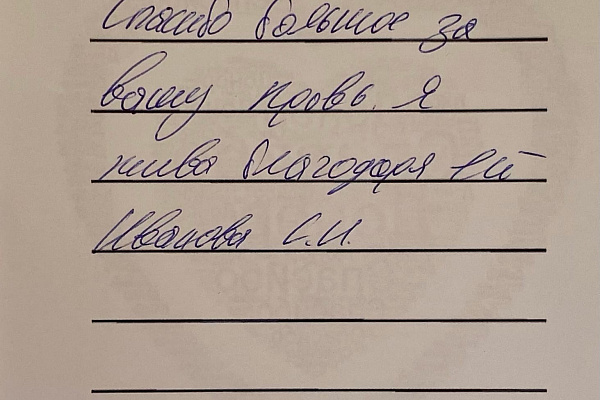 Спасибо большое за
вашу кровь. Я
жива благодаря ей
Иванова С.И.